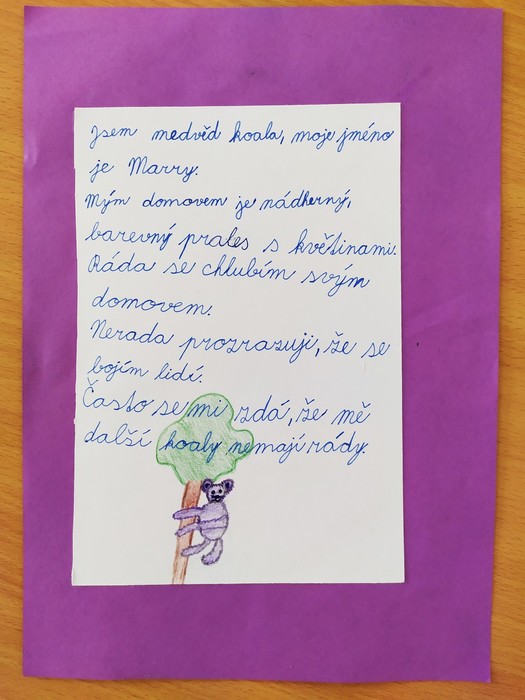 Jsem medvěd koala, moje jméno
je Marry.
Mým domovem je nádherný,
barevný prales s květinami.
Ráda se chlubím svým
domovem.
Nerada prozrazuji, že se
bojím lidí.
Často se mi zdá, že mě
další koaly nemají rády.